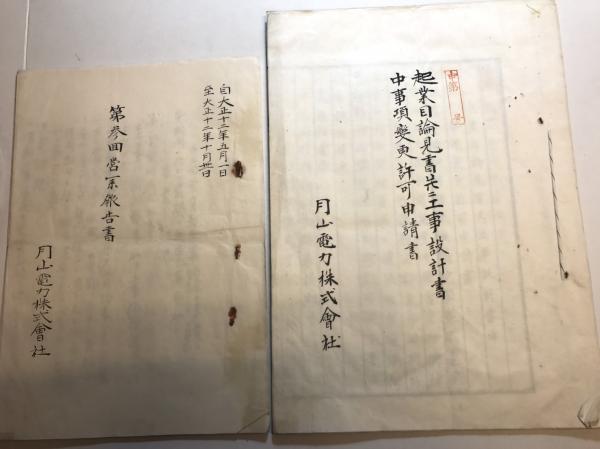 自大正十二年五月一日
至大正十二年十月卅一日
第参回営業報告書
月山電力株式會社
申第 号
起業目論見書並ニ工事設計書
中事項変更許可申請書
月山電力株式會社